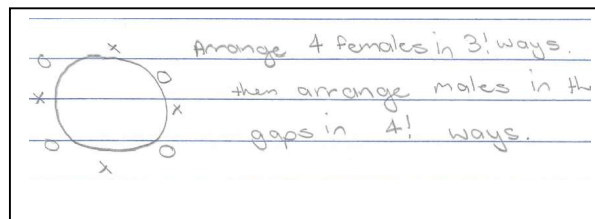 Arrange 4 females in 3! ways.
then arrange males in th
gaps in 4! ways.